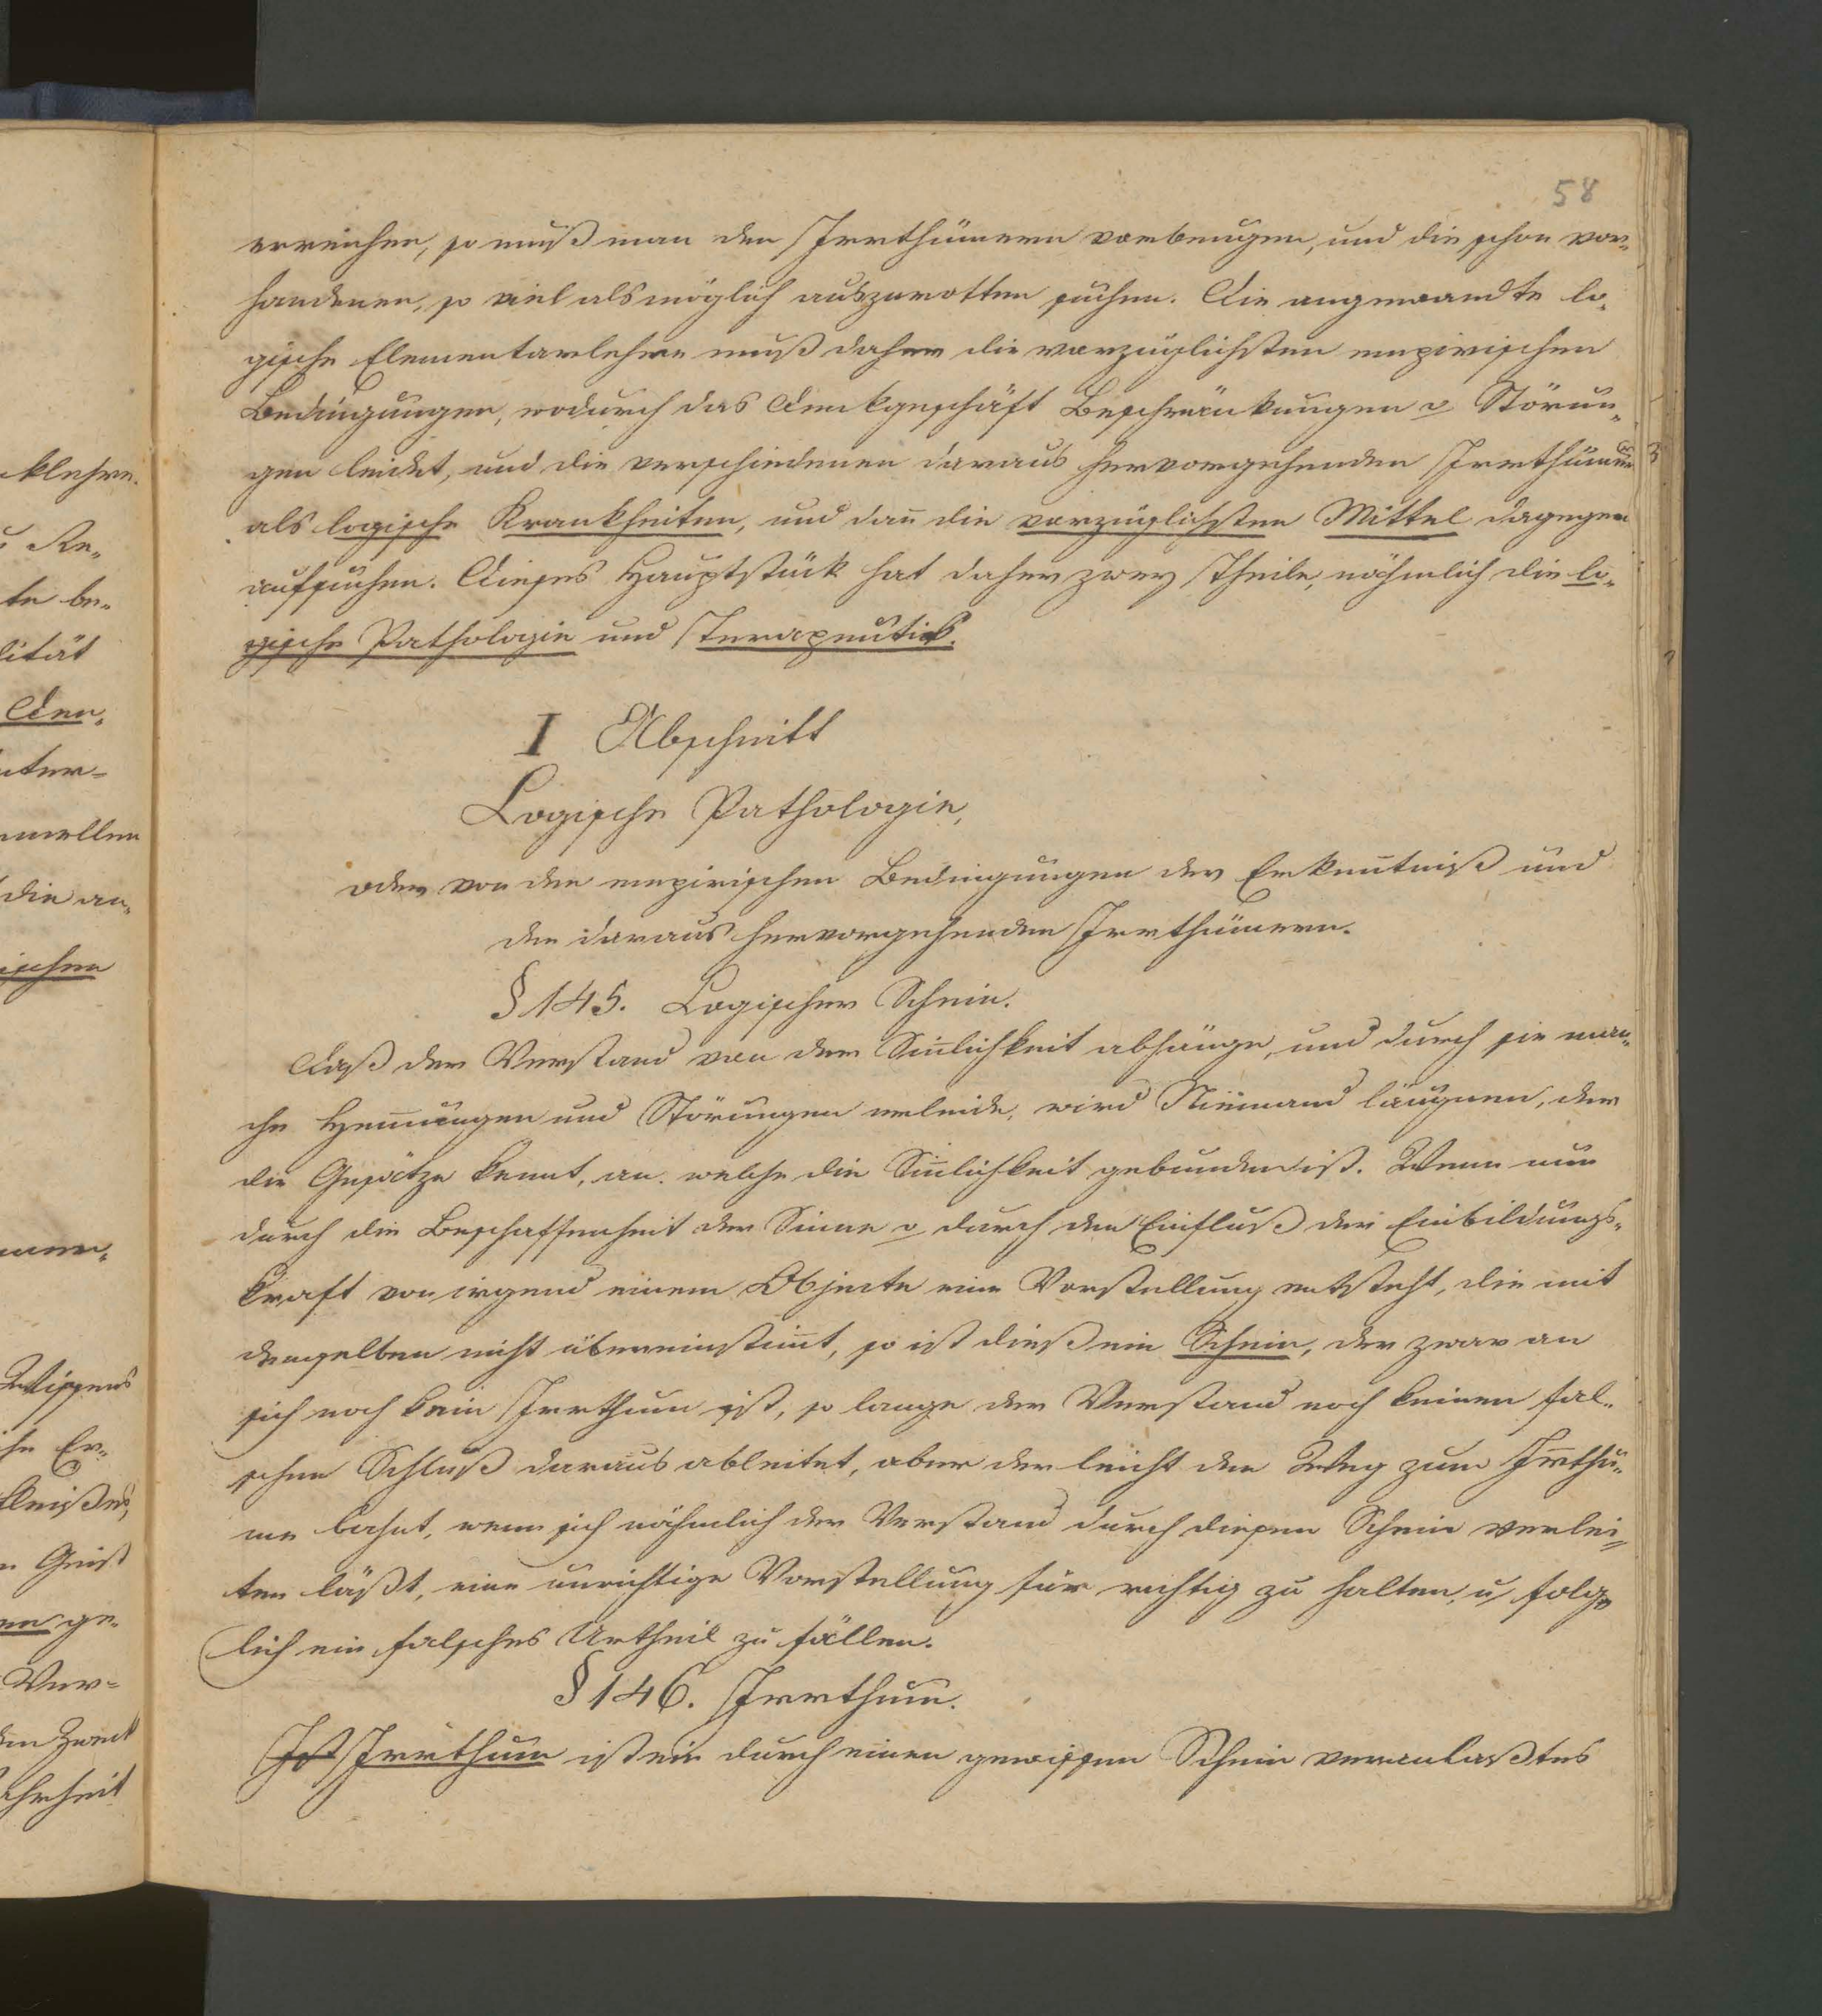 58
erreichen, so muß man den Irrthümern vorbeugen, und die schon vor„
handenen, so viel als möglich auszurotten suchen. Die angewandte lo„
gische Elementarlehre muß daher die vorzüglichsten empirischen
Bedingungen, wodurch das Denkgeschäft Beschränkungen u Störun„
gen leidet, und die verschiedenen daraus hervorgehenden Irrthümer
als logische Krankheiten, und dañ die vorzüglichsten Mittel dagegen
aufsuchen. Dieses Hauptstück hat daher zwey Theile, nähmlich die lo„
gische Pathologie und Terapeutik.
I Abschnitt
Logische Pathologie,
oder von den empirischen Bedingungen der Erkeñtniß und
den daraus hervorgehenden Irrthümern.
§ 145. Logischer Schein.
Daß der Verstand von der Siñlichkeit abhänge, und durch sie man„
che Hem̄ungen und Störungen erleide, wird Niemand läugnen, der
die Gesätze kennt, an welche die Siñlichkeit gebunden ist. Wenn nun
durch die Beschaffenheit der Sinne u durch den Einfluß der Einbildungs„
kraft von irgend einem Objecte eine Vorstellung entsteht, die mit
demselben nicht übereinstim̄t, so ist dieß ein Schein, der zwar an
sich noch kein Irrthum ist, so lange der Verstand noch keinen fal„
schen Schluß daraus ableitet, aber der leicht den Weg zum Irrthu„
me bahnt, wenn sich nähmlich der Verstand durch diesen Schein verlei„
ten läßt, eine unrichtige Vorstellung für richtig zu halten, u folg„
lich ein falsches Urtheil zu fällen.
§ 146. Irrthum.
Ist Irrthum ist ein durch einen gewissen Schein veranlaßtes
klehre.
Re„
te be„
lität
Den„
nter=
die an„
ischen
Wissens
he Er„
Geist
en ge„
Ver=
den Zweck
ahrheit